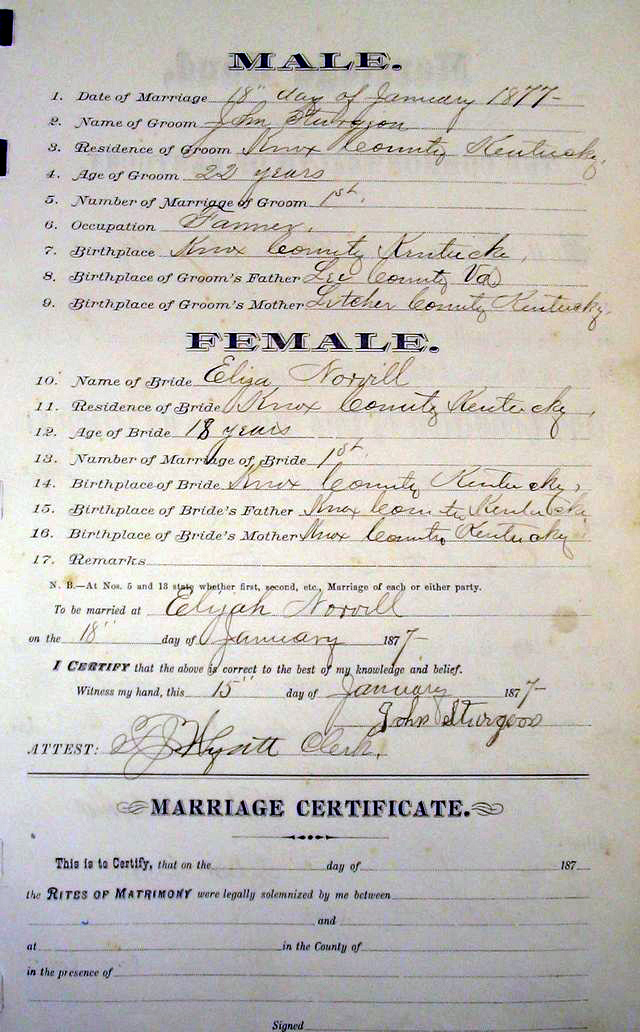 MALE.
1. Date of Marriage 18" day of January 1877-
2. Name of Groom John Sturgeon
3. Residence of Groom Knox County Kentucky,
4. Age of Groom 22 years
5. Number of Marriage of Groom 1st.
6. Occupation Farmer.
7. Birthplace Knox County Kentucke,
8. Birthplace of Groom's Father Lee County Va
9. Birthplace of Groom's Mother Letcher County Kentucky,
FEMALE.
10. Name of Bride Eliza Norvill
11. Residence of Bride Knox County Kentucky,
12. Age of Bride 18 years
13. Number of Marriage of Bride 1st.
14. Birthplace of Bride Knox County Kentucky,
15. Birthplace of Bride's Father Knox County Kentucke
16. Birthplace of Bride's Mother Knox County Kentucky
17. Remarks
N. B.—At Nos. 5 and 13 state whether first, second, etc., Marriage of each or either party.
To be married at Elijah Norvill
on the 18" day of January 1877-
I CERTIFY that the above is correct to the best of my knowledge and belief.
Witness my hand, this 15" day of January 1877-
John Sturgeon
ATTEST: Wyatt Clerk.
MARRIAGE CERTIFICATE.
This is to Certify, that on the day of 187
the RITES OF MATRIMONY were legally solemnized by me between
and
at in the County of
in the presence of
Signed